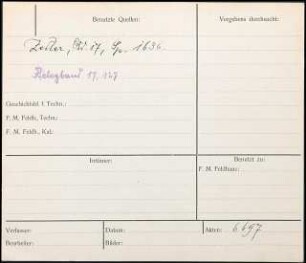 Benutzte Quellen:
Vergebens durchsucht:
Zedler, Bd. 17, Sp. 1636
Relegband 17, 127
Geschichtsbl f. Techn.:
F. M. Feldh., Techn.:
F. M. Feldh., Kal.:
Insasse:
Benutzt zu:
F. M. Feldhaus:
Verfasser:
Datum:
Akten: 6697
Bearbeiter:
Bilder: